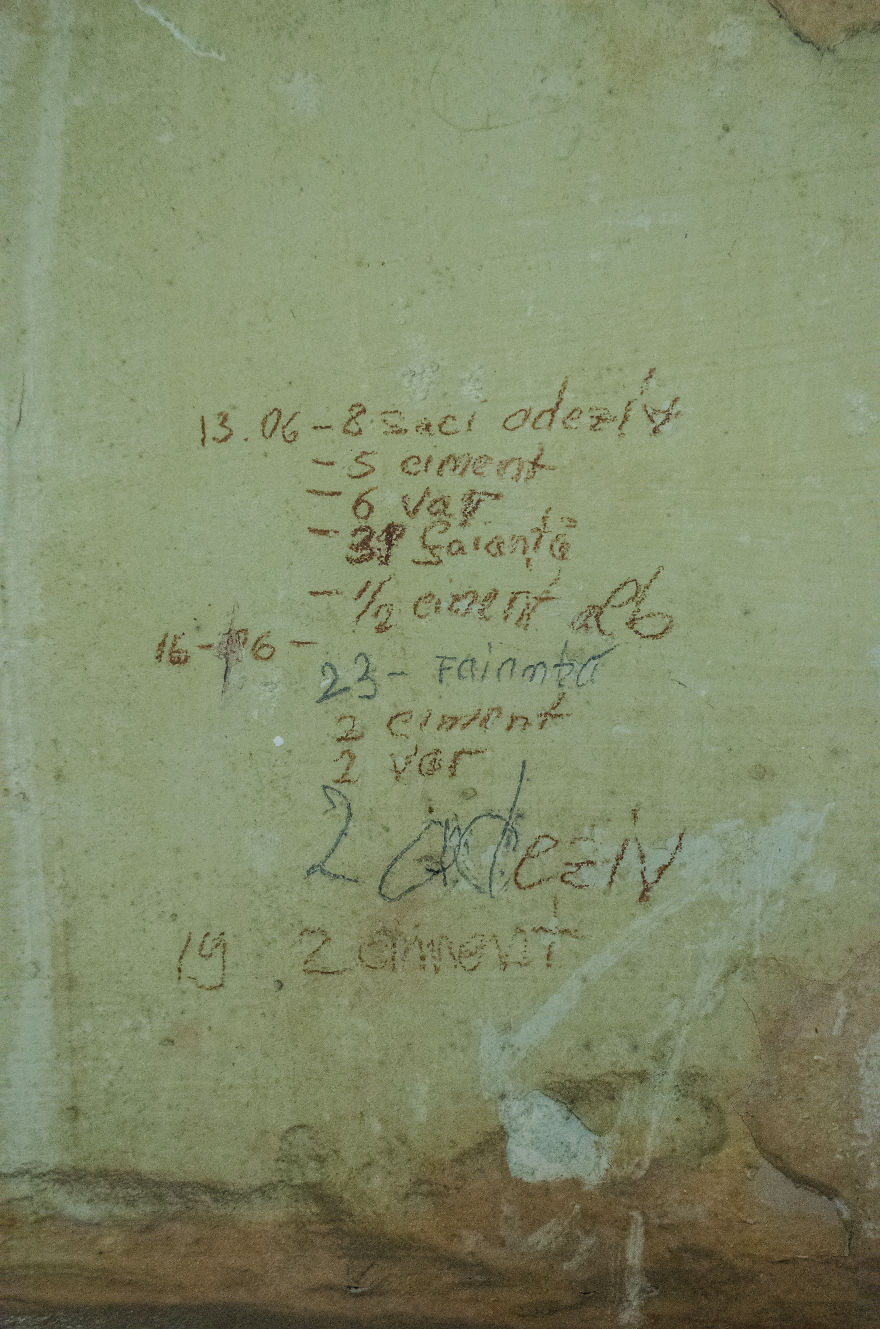 13.06 - 8 saci adeziv
- 5 ciment
- 6 var
- 38 faianță
- 1/2 ciment alb
16-06 -
23 - Faianță
2 ciment
2 var
2 adeziv
19. 2 ciment